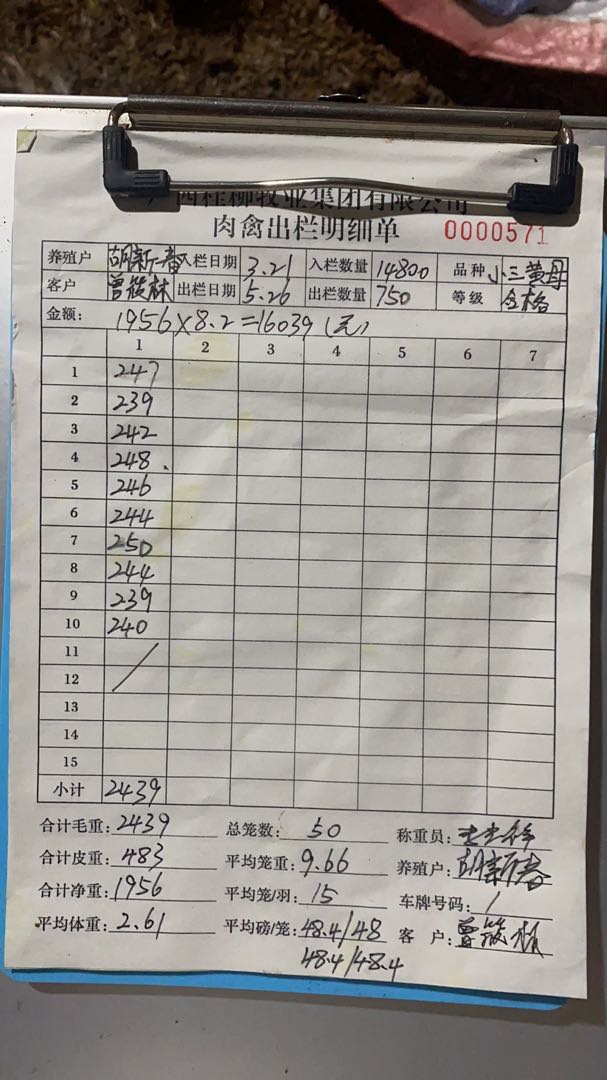 西桂柳牧业集团有限公司
肉禽出栏明细单 0000571
养殖户 胡新春 入栏日期 3.21 入栏数量 14800 品种 小三黄母
客户 曾筱林 出栏日期 5.26 出栏数量 750 等级 合格
金额: 1956×8.2=16039(元)
1 2 3 4 5 6 7
1 247
2 239
3 242
4 248
5 246
6 244
7 250
8 244
9 239
10 240
11
12
13
14
15
小计 2439
合计毛重: 2439 总笼数: 50 称重员:
合计皮重: 483 平均笼重: 9.66 养殖户: 胡新春
合计净重: 1956 平均笼/羽: 15 车牌号码: /
平均体重: 2.61 平均磅/笼: 48.4/48 客 户: 曾筱林
48.4/48.4